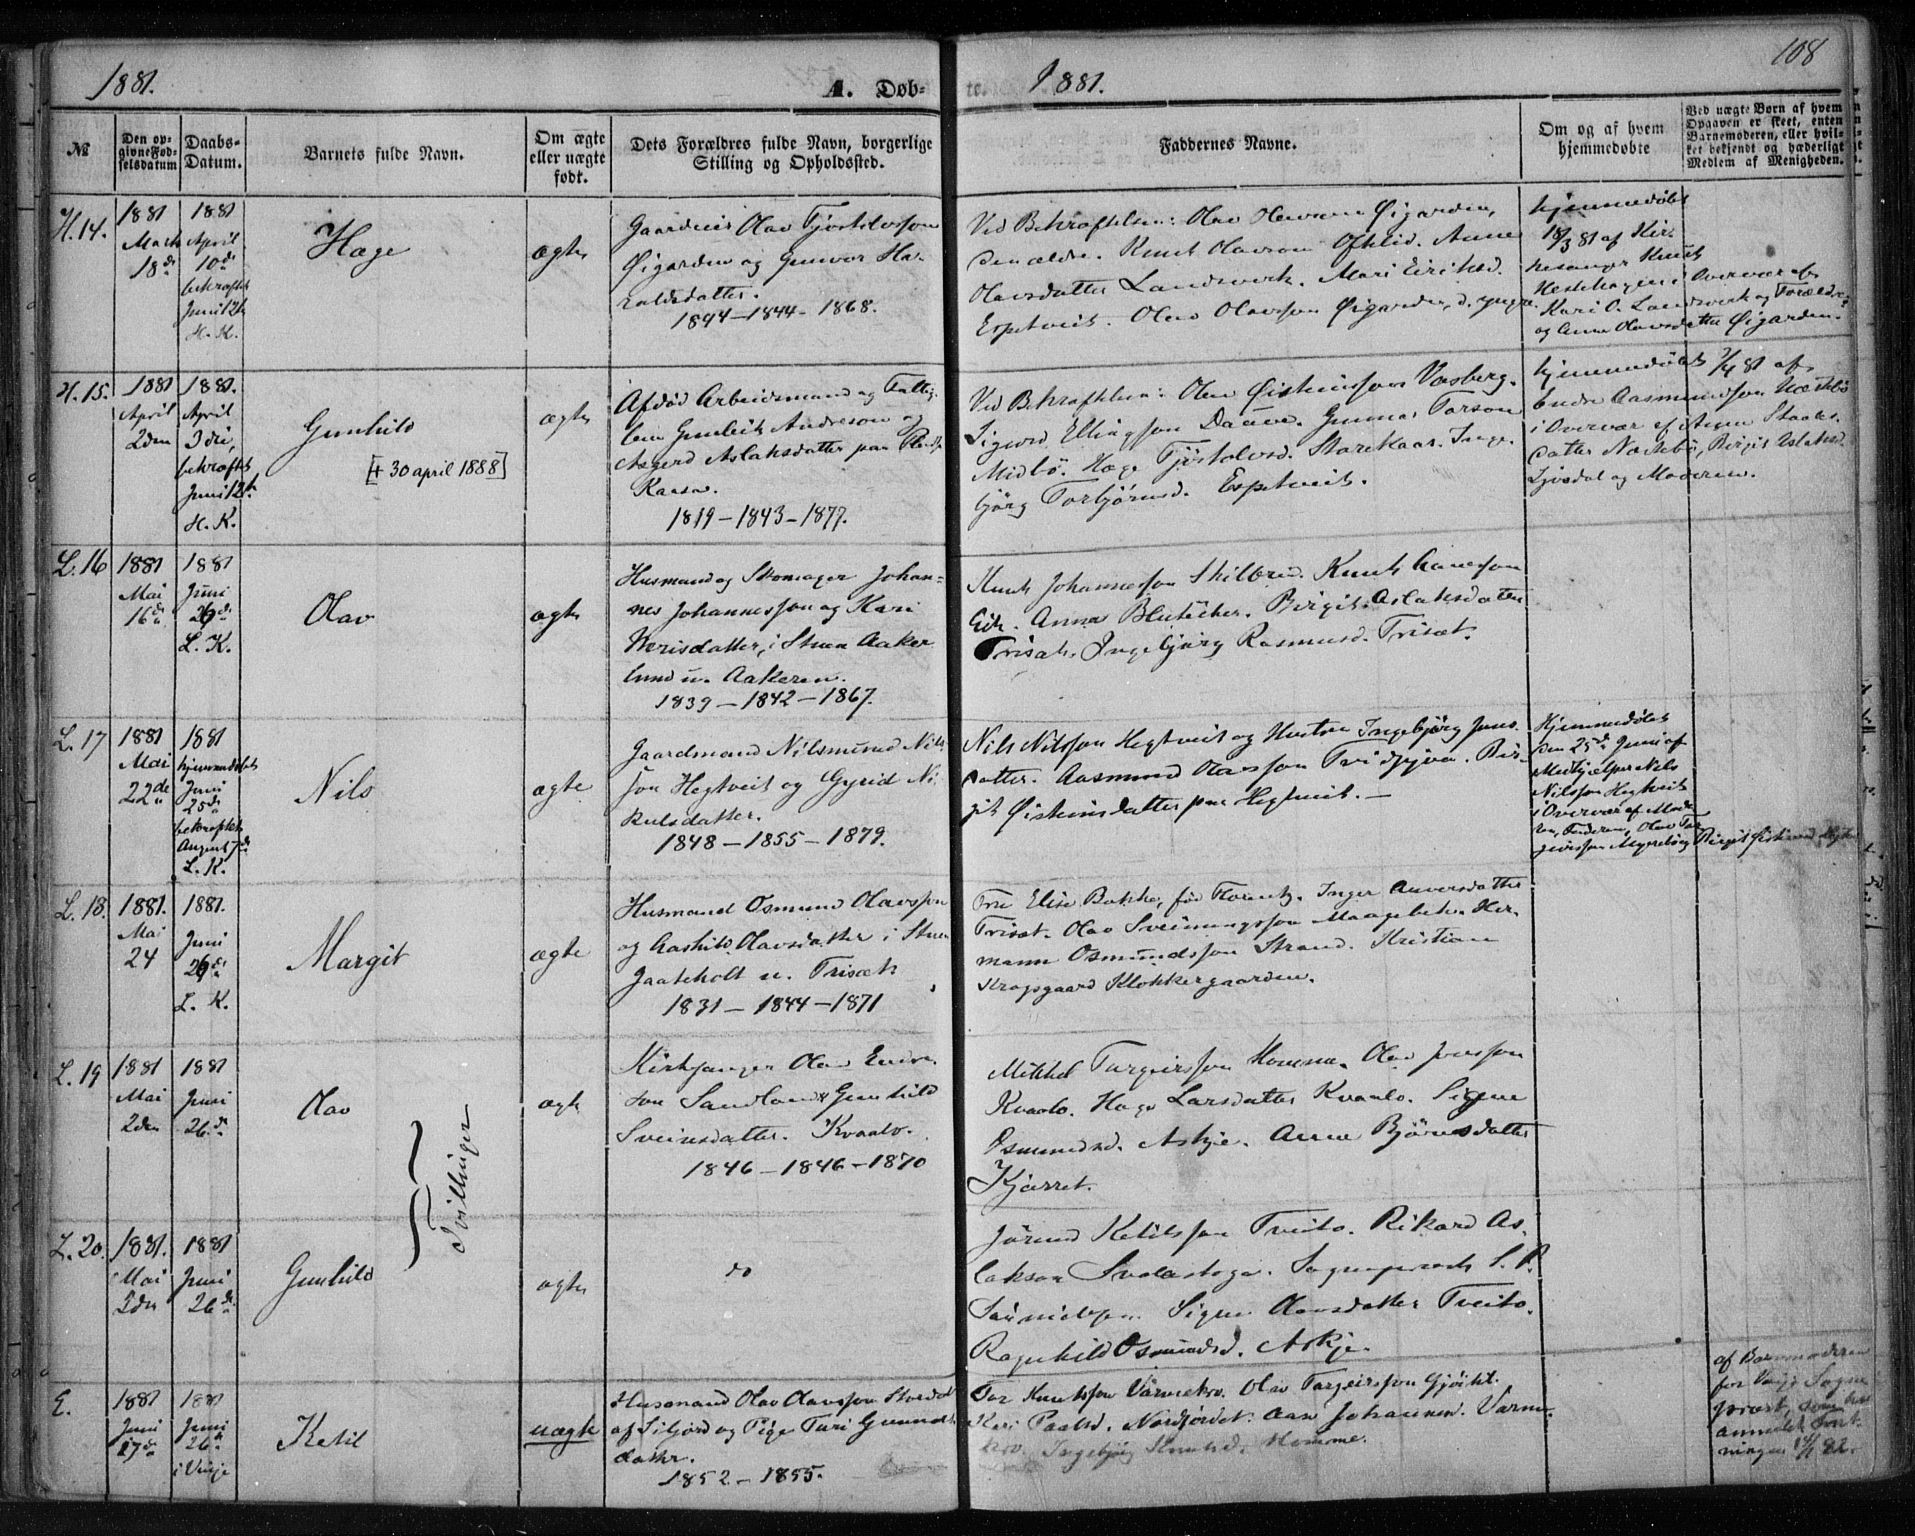 1881.
A. Døb-
te.
1881.
108
№
Den op-
givne Fød-
selsdatum
Daabs-
Datum.
Barnets fulde Navn.
Om ægte
eller uægte
født.
Dets Forældres fulde Navn, borgerlige
Stilling og Opholdssted.
Faddernes Navne.
Om og af hvem
hjemmedøbte
Ved uægte Børn af hvem
Opgaven er skeet, enten
Barnemoderen, eller hvil-
ket bekjendt og hæderligt
Medlem af Menigheden.
H. 14.
1881
Marts
18de
1881
April
10de
bekræftet
Juni 12te
H. K.
Hæge
ægte
Olav Fjostolvsson
Øigarden og Gunvor Ha-
raldsdatter.
1844 - 1844 - 1868.
Ved Bekræftelsen: Olav Olavson Øigarden,
den ældre. Knut Olavson Ofteid. Anne
Olavsdatter Landsverk. Mari Eiriksd.
Espetveit. Olav Olavsson Øigarden, d. yngre.
hjemmedøbt
18/3 81 af Kir-
kesanger Knut
i Overvær af
Kari O. Landsverk og Forældre
og Anne Olavsdatter Øigarden.
H. 15.
1881
April
2den
1881.
April
3die,
bekræftet
Juni 12te
H. K.
Gunhild
[+ 30 april 1888]
ægte
Afdød Arbeidsmand og Fattig-
lem Gunleik Andreson og
Asgerd Aslaksdatter paa
1819 - 1843 - 1877.
Ved Bekræftelsen: Olav Øisteinsson Vasberg.
Sigurd Ellingson Gunnar Torson
Midbø. Hæge Fjostolvsd. Storekaas. Inge-
bjørg Torbjørnsd. Espetveit.
hjemmedøbt 3/4 81 af
Endre Aasmundson Næstebø
i Overvær af
datter Næstebø, Birgit Aslaksd.
og Moderen.
L. 16
1881
Mai
16de
1881
Juni
26de
L. K.
Olav
ægte
Husmand og Skomager Johan-
nes Johannesson og Kari
i Stuen Aaker
lund u. Aakeren.
1839 - 1842 - 1867.
Knut Johannesson Skilbred. Knut
Eik. Anna Birgit Aslaksdatter
Trisæt. Ingebjørg Rasmusd. Trisæt.
L. 17
1881
Mai
22de
1881
hjemmedøbt
Juni
25de
bekræftet
August 7de
L. K.
Nils
ægte
Gaardmand Nilsmund Nils
son Hegtveit og Gyrid Ni-
kulsdatter.
1848 - 1855 - 1879.
Nils Nilsson Hegtveit og Hustru Ingebjørg Jons-
datter. Aasmund Olavsson Bir-
git Øisteinsdatter paa Hegtveit. -
Hjemmedøbt
den 25de Juni af
Medhjælper Nils
Nilsson Hegtveit
i Overvær af Mode
ren, Faderen, Olav Tar
geirsson Birgit Øisteinsd.
L. 18.
1881.
Mai
24
1881.
Juni
26de
L. K.
Margit
ægte
Husmand Osmund Olavsson
og Aashild Olavsdatter i Stuen
Jaateholt u. Trisæt
1831 - 1844 - 1871
Fru Elise Bakke, fød Inger Anversdatter
Trisæt. Olav Sveinungsson Her-
mann Osmundsson Strand. Kristian
Klokkergaarden.
L. 19
1881
Mai
2den
1881
Juni
26de
Olav
ægte
Kirksanger Olav Endre-
son Sandland & Gunhild
Sveinsdatter. Kvaalo.
1846 - 1846 - 1870
Mikkel Targeirsson Homme. Olav Jonsson
Kvaalo. Hæge Larsdatter Kvaalo. Signe
Osmundsd. Askje. Anne Bjørnsdatter
Kjærret.
Tvillinger
L. 20.
1881.
Mai
2den
1881
Juni
26de
Gunhild
ægte
do
Jørund Ketilsson Tveito. Rikard As-
lakson Svalastoga. Sogneprest
Signe Olavsdatter Tveito.
Ragnhild Osmundsd. Askje.
E.
1881
Juni
17de
1881
Juni
26de
i Vinje
Ketil
uægte
Husmand Olav Olavsson
af Siljord og Pige Turi Gunnulfs
datter.
1852 - 1855.
Tor Knutsson Værnekvo. Olav Targeirsson
Kari Paalsd. Johannesd. Værne-
kvo. Ingebjørg Knutsd. Homme.
af Barnmoderen
for Vinje Sogne
præst, som har
anmeldt Foret-
ningen 14/1 82.